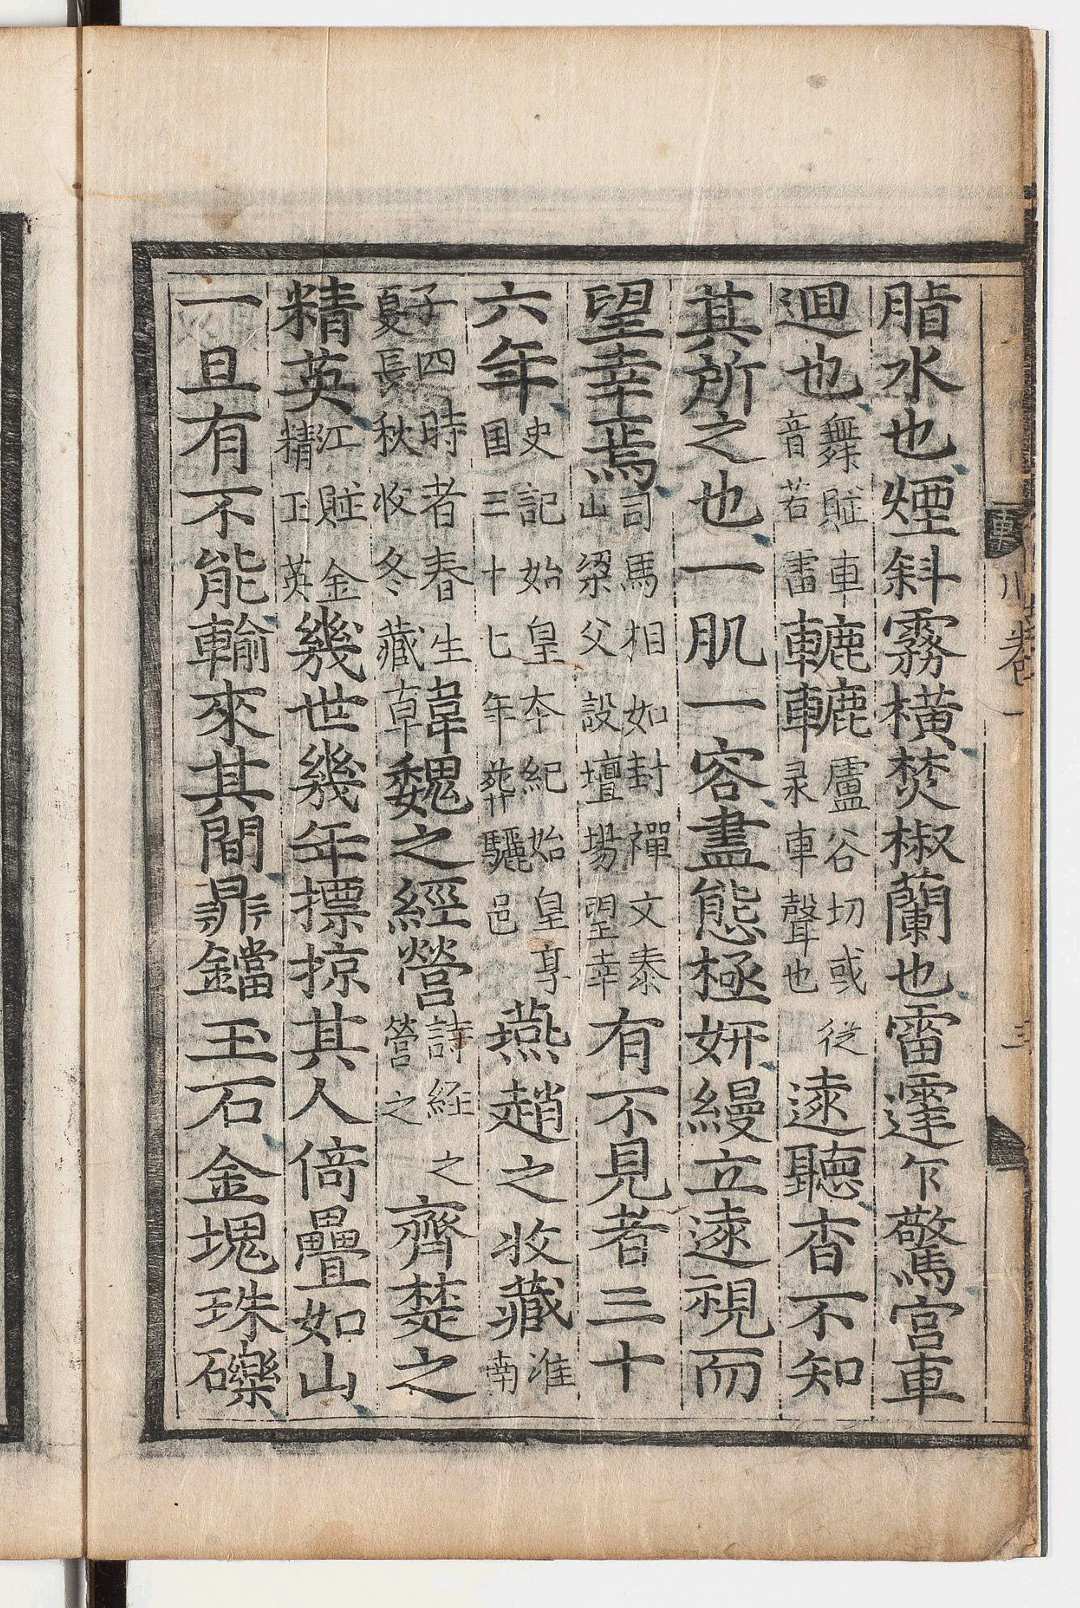 樊川卷一　三
脂水也煙斜霧橫焚椒蘭也雷霆乍驚宮車
過也舞賦車音若雷轆轆盧谷切或從彔車聲也遠聽杳不知
其所之也一肌一容盡態極姸縵立遠視而
望幸焉司馬相如封禪文泰山梁父設壇場望幸有不見者三十
六年史記始皇本紀始皇享国三十七年葬驪邑燕趙之收藏淮南
子四時者春生夏長秋收冬藏韓魏之經營詩経之營之齊楚之
精英江賦金精玉英幾世幾年摽掠其人倚疊如山
一旦有不能輸來其間鼎鐺玉石金塊珠礫